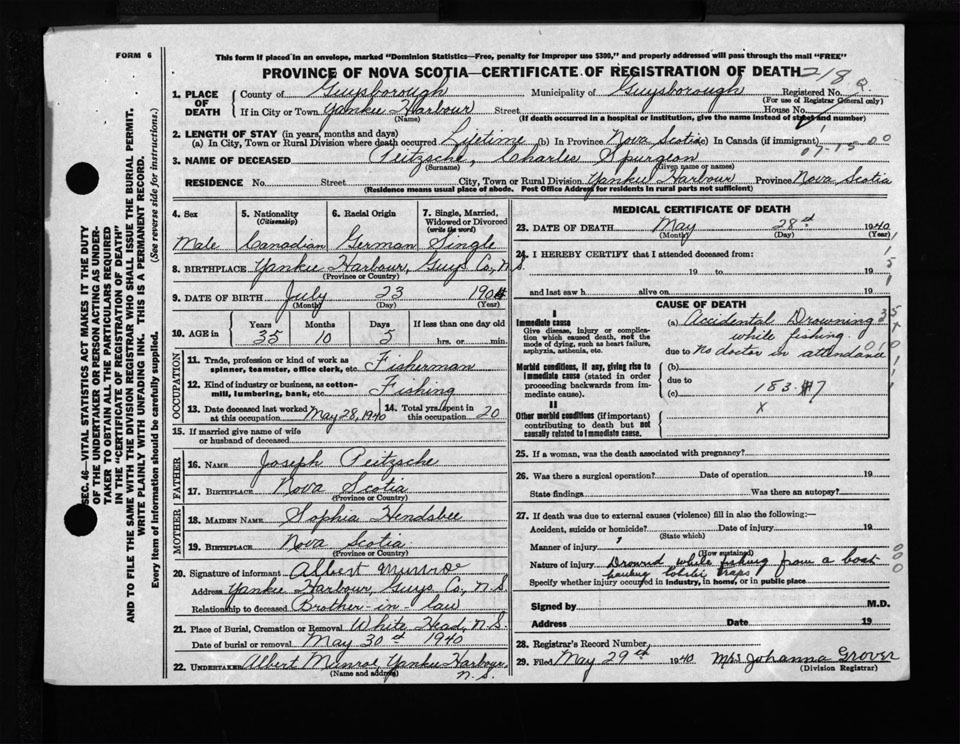 FORM 6
This form if placed in an envelope, marked "Dominion Statistics—Free, penalty for improper use $300," and properly addressed will pass through the mail "FREE"
PROVINCE OF NOVA SCOTIA—CERTIFICATE OF REGISTRATION OF DEATH
218
1. PLACE OF DEATH County of Guysborough Municipality of Guysborough Registered No.
(For use of Registrar General only)
If in City or Town Yankee Harbour Street House No.
(Name) (If death occurred in a hospital or institution, give the name instead of street and number)
2. LENGTH OF STAY (in years, months and days)
(a) In City, Town or Rural Division where death occurred Lifetime (b) In Province Nova Scotia (c) In Canada (if immigrant)
07-15-00
3. NAME OF DECEASED Peitzsche, Charles Spurgeon
(Surname) (Given name or names)
RESIDENCE No. Street City, Town or Rural Division Yankee Harbour Province Nova Scotia
(Residence means usual place of abode. Post Office Address for residents in rural parts not sufficient)
SEC. 46—VITAL STATISTICS ACT MAKES IT THE DUTY
OF THE UNDERTAKER OR PERSON ACTING AS UNDER-
TAKER TO OBTAIN ALL THE PARTICULARS REQUIRED
IN THE "CERTIFICATE OF REGISTRATION OF DEATH"
AND TO FILE THE SAME WITH THE DIVISION REGISTRAR WHO SHALL ISSUE THE BURIAL PERMIT.
WRITE PLAINLY WITH UNFADING INK. THIS IS A PERMANENT RECORD.
Every item of information should be carefully supplied. (See reverse side for instructions.)
4. Sex 5. Nationality (Citizenship) 6. Racial Origin 7. Single, Married, Widowed or Divorced (write the word)
Male Canadian German Single
8. BIRTHPLACE Yankee Harbour, Guys Co, N.S.
(Province or Country)
9. DATE OF BIRTH July 23 1904
(Month) (Day) (Year)
10. AGE in Years Months Days If less than one day old
35 10 5 hrs. or min.
OCCUPATION
11. Trade, profession or kind of work as spinner, teamster, office clerk, etc. Fisherman
12. Kind of industry or business, as cotton-mill, lumbering, bank, etc. Fishing
13. Date deceased last worked at this occupation May 28, 1940 14. Total yrs. spent in this occupation 20
15. If married give name of wife or husband of deceased
FATHER
16. NAME Joseph Peitzsche
17. BIRTHPLACE Nova Scotia
(Province or Country)
MOTHER
18. MAIDEN NAME Sophia Hendsbee
19. BIRTHPLACE Nova Scotia
(Province or Country)
20. Signature of informant Albert Munroe
Address Yankee Harbour, Guys Co, N.S.
Relationship to deceased Brother-in-law
21. Place of Burial, Cremation or Removal White Head, N.S.
Date of burial or removal May 30th 1940
22. UNDERTAKER Albert Munroe, Yankee Harbour, N.S.
(Name and address)
MEDICAL CERTIFICATE OF DEATH
23. DATE OF DEATH May 28th 1940
(Month) (Day) (Year)
24. I HEREBY CERTIFY that I attended deceased from:
19 to 19
and last saw h alive on 19
CAUSE OF DEATH
I
Immediate cause
Give disease, injury or complication which caused death, not the mode of dying, such as heart failure, asphyxia, asthenia, etc.
(a) Accidental Drowning
while fishing.
due to No doctor in attendance
Morbid conditions, if any, giving rise to immediate cause (stated in order proceeding backwards from immediate cause).
(b)
due to
(c) 183
X
II
Other morbid conditions (if important) contributing to death but not causally related to immediate cause.
25. If a woman, was the death associated with pregnancy?
26. Was there a surgical operation? Date of operation 19
State findings Was there an autopsy?
27. If death was due to external causes (violence) fill in also the following:—
Accident, suicide or homicide? Date of injury 19
(State which)
Manner of injury
(How sustained)
Nature of injury Drowned while fishing from a boat
hauling lobster traps
Specify whether injury occurred in industry, in home, or in public place
Signed by M.D.
Address Date 19
28. Registrar's Record Number
29. Filed May 29th 1940 Mrs Johanna Grover
(Division Registrar)